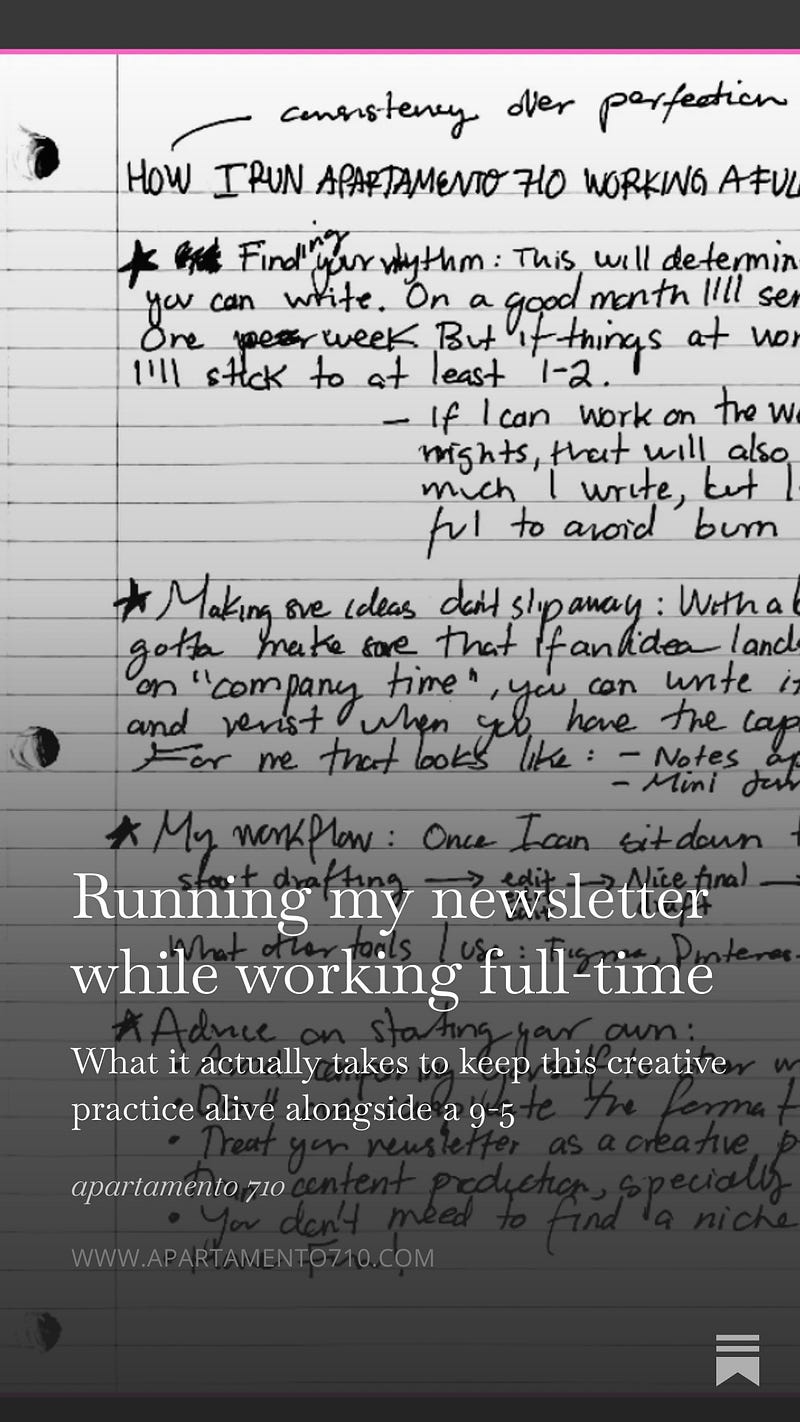 consistency over perfection
HOW I RUN APARTAMENTO 710 WORKING A FUL
Finding your rhythm: This will determin
you can write. On a good month I'll ser
One per week. But if things at wor
I'll stick to at least 1-2.
- If I can work on the we
nights, that will also
much I write, but I
ful to avoid burn
Making sure ideas don't slip away: With a b
gotta make sure that if an idea lands
on "company time", you can write it
and revist when you have the cap
For me that looks like: - Notes ap
- Mini
My workflow: Once I can sit down t
start drafting → edit → Nice final →
edit draft
What other tools I use: Figma, Pinteres
Running my newsletter
while working full-time
Advice on starting your own:
What it actually takes to keep this creative
practice alive alongside a 9-5
write the format
• Treat your newsletter as a creative p
content production, specially
• You don't need to find a niche
apartamento 710
WWW.APARTAMENTO710.COM